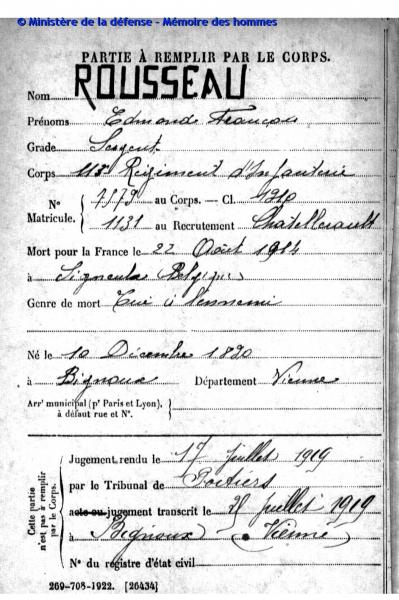 © Ministère de la défense - Mémoire des hommes
PARTIE À REMPLIR PAR LE CORPS.
Nom ROUSSEAU
Prénoms Edmond François
Grade Sergent
Corps 113e Régiment d'Infanterie
N° Matricule. { au Corps. — Cl. 1910
1131 au Recrutement Chatellerault
Mort pour la France le 22 Août 1914
à Signeulx (Belgique)
Genre de mort Tué à l'ennemi
Né le 10 Décembre 1890
à Bignoux Département Vienne
Arrt municipal (pr Paris et Lyon), à défaut rue et N°. }
Cette partie n'est pas à remplir par le Corps.
Jugement rendu le 17 juillet 1919
par le Tribunal de Poitiers
acte ou jugement transcrit le juillet 1919
à Bignoux (Vienne)
N° du registre d'état civil
269-708-1922. [26434]